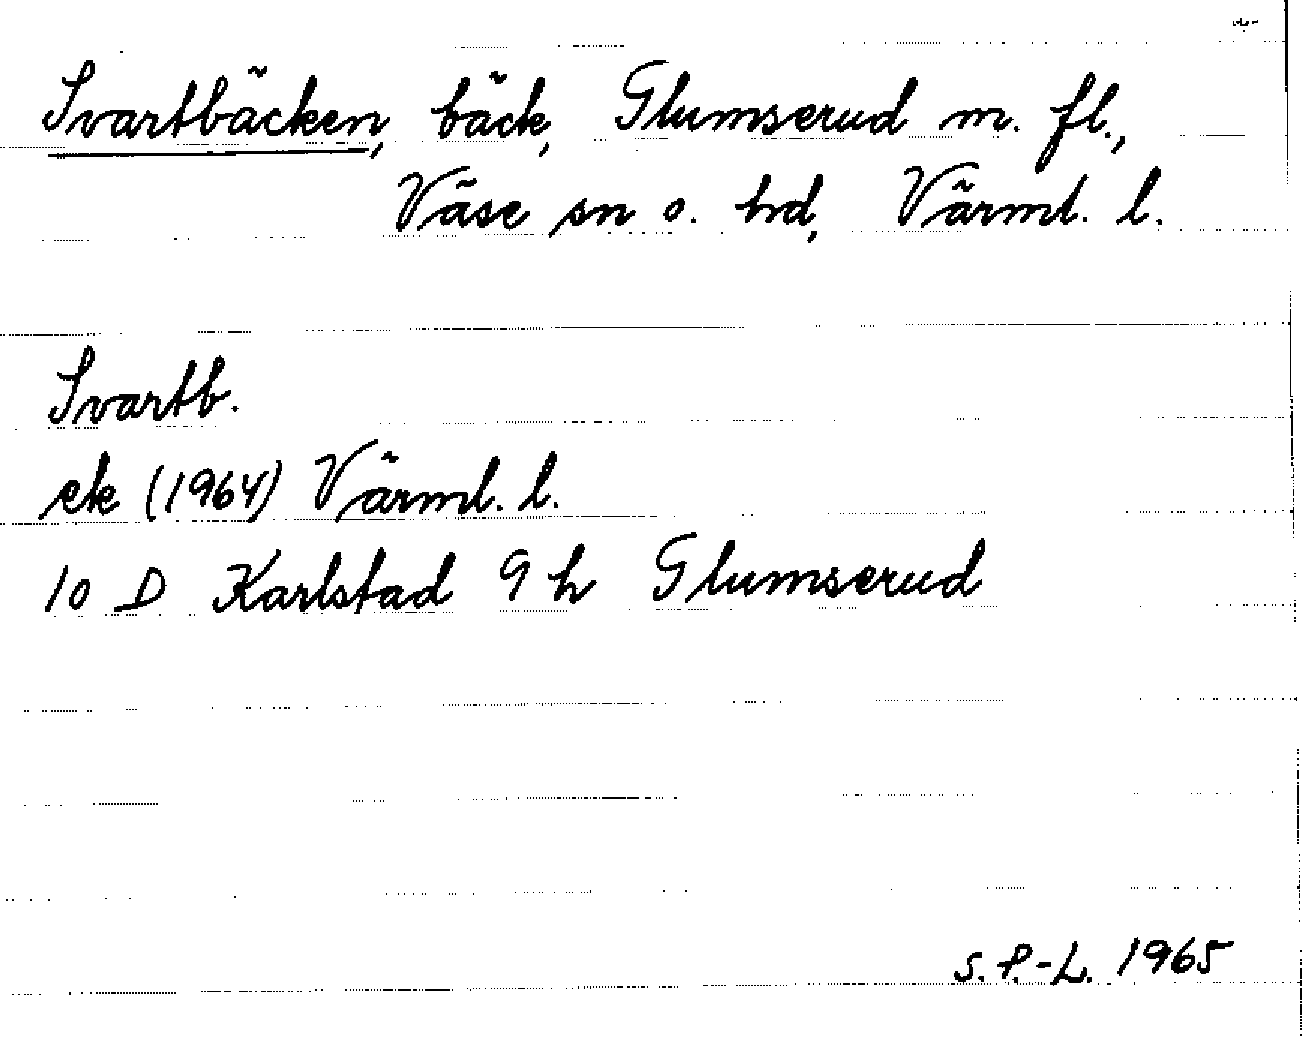 Svartbäcken, bäck, Glumserud m. fl.,
Väse sn o. hd, Värml. l.
Svartb.
ek (1964) Värml. l.
10 D Karlstad 9 h Glumserud
S. P.-L. 1965